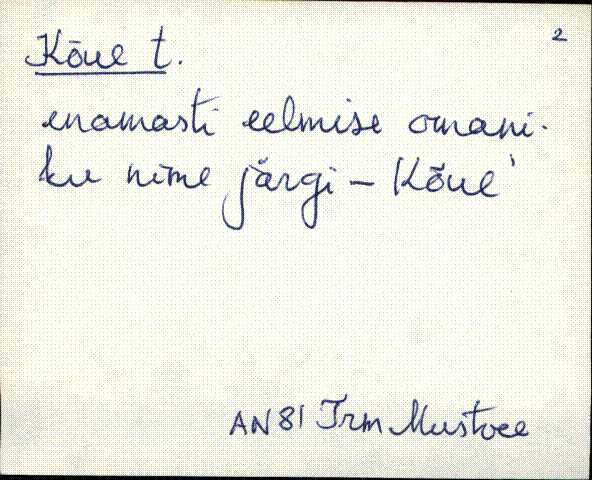 2
Kõue t.
enamasti eelmise omani-
ku nime järgi – Kõue'
AN 81 Trm Mustvee